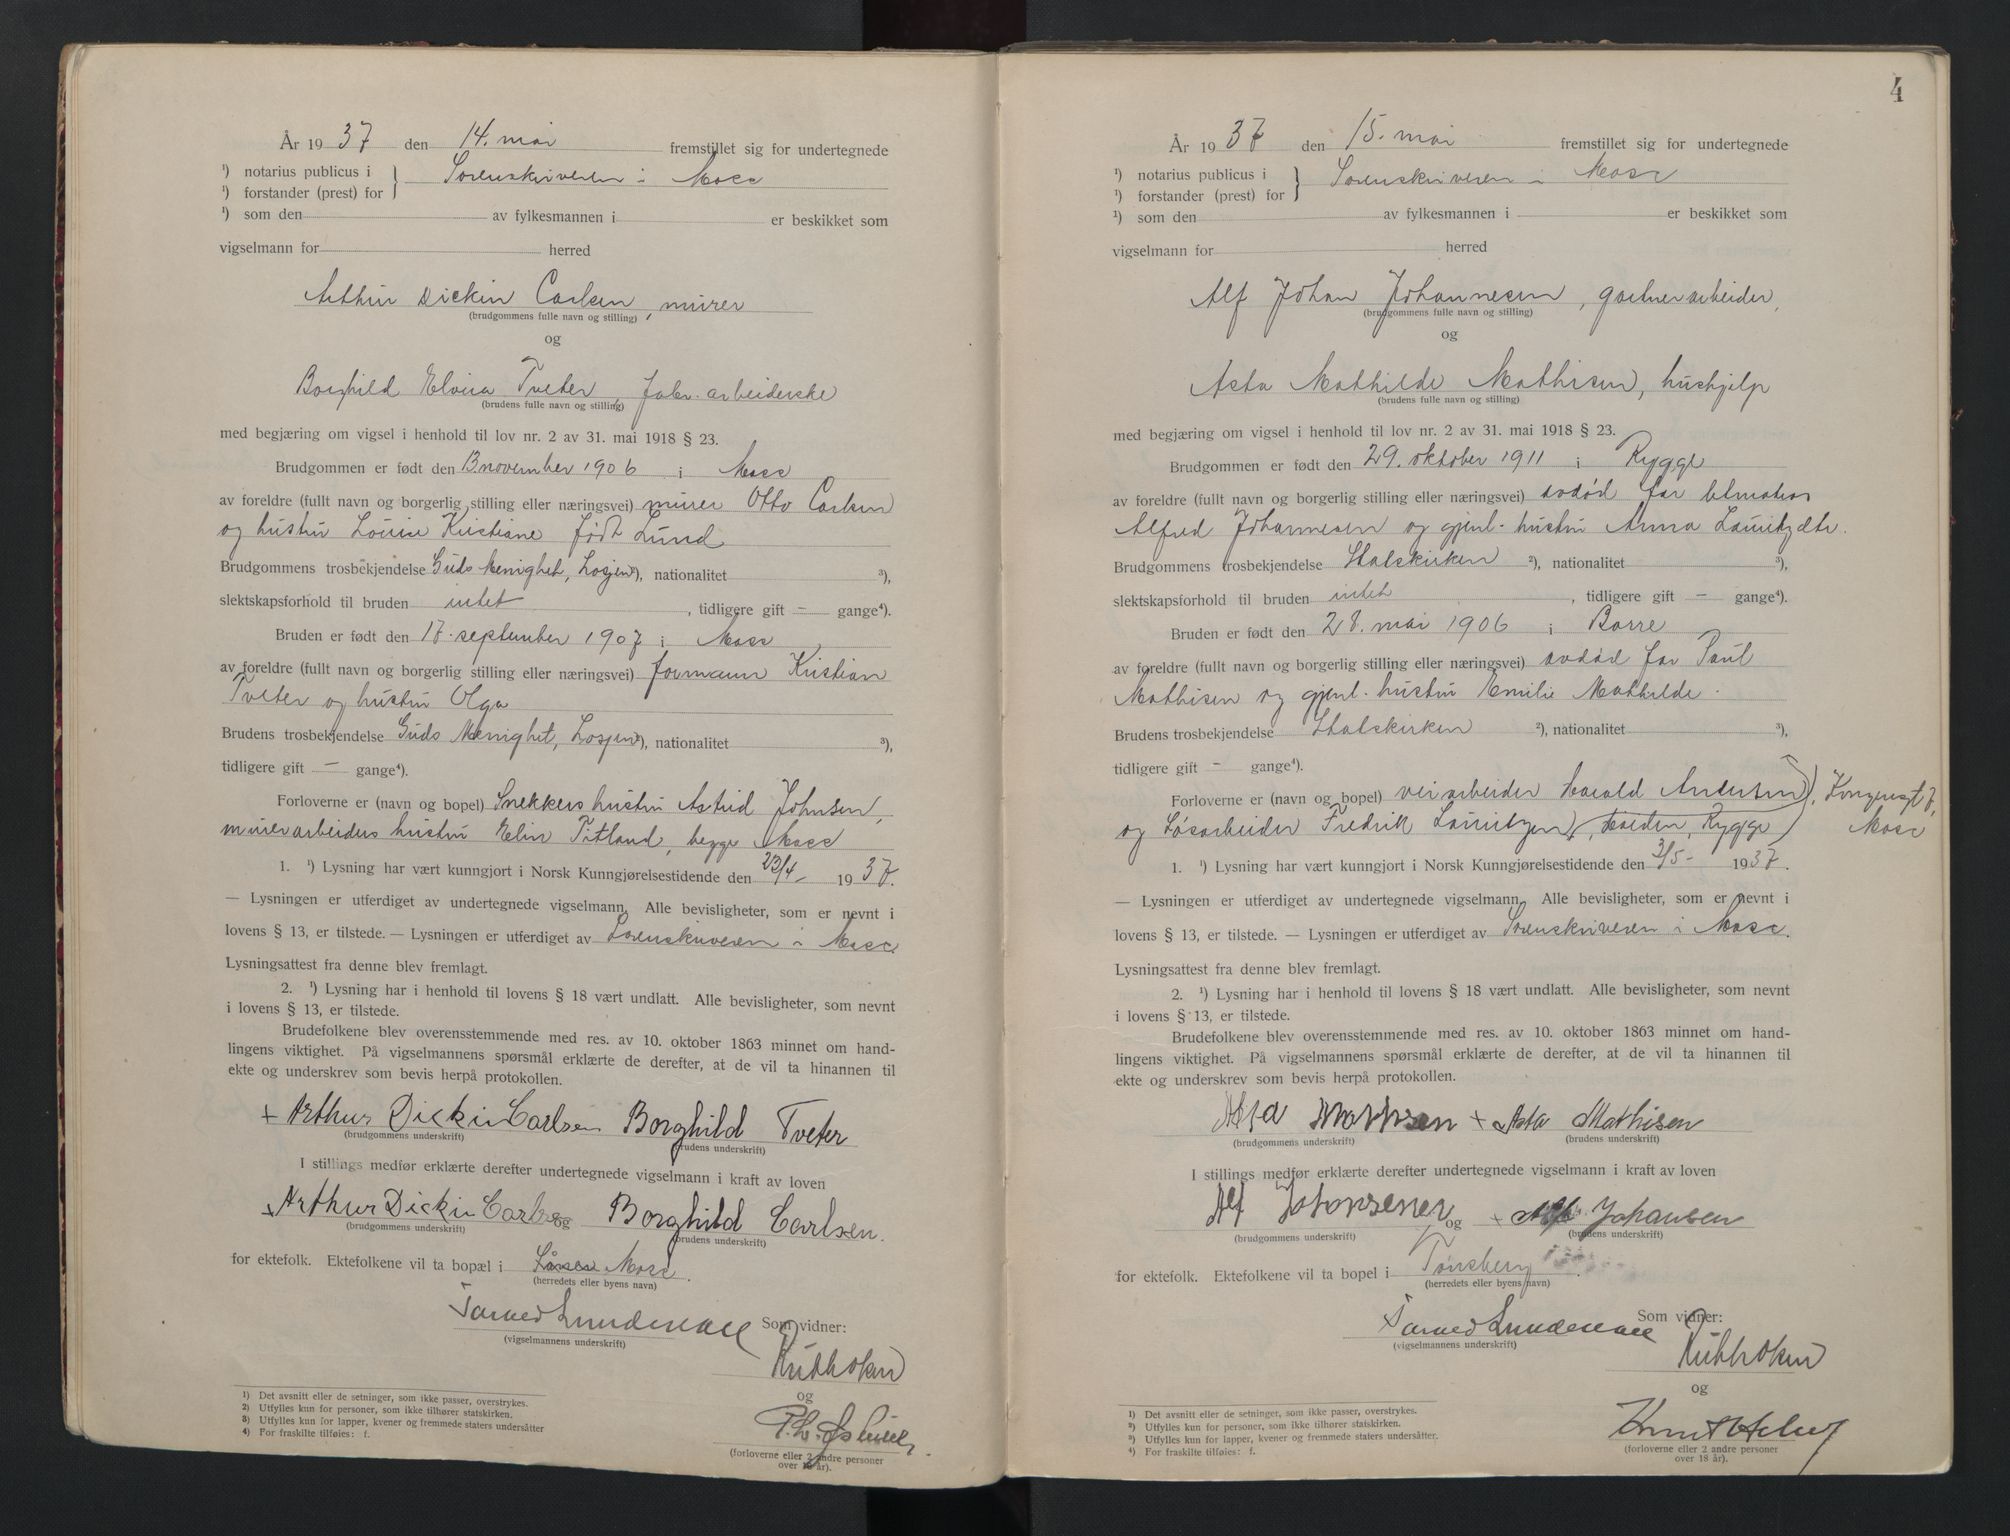 År 1937 den 14. mai fremstillet sig for undertegnede
¹) notarius publicus i
¹) forstander (prest) for } Sorenskriveren i Moss
¹) som den av fylkesmannen i er beskikket som
vigselmann for herred
Arthur Dickin Carlsen, murer
(brudgommens fulle navn og stilling)
og
Borghild Elvira Tveter, fabr. arbeiderske
(brudens fulle navn og stilling)
med begjæring om vigsel i henhold til lov nr. 2 av 31. mai 1918 § 23.
Brudgommen er født den 13 november 1906 i Moss
av foreldre (fullt navn og borgerlig stilling eller næringsvei) murer Otto Carlsen
og hustru Louise Kristiane født Lund
Brudgommens trosbekjendelse Guds Menighet, Losjen ²), nationalitet ³),
slektskapsforhold til bruden intet, tidligere gift – gange⁴).
Bruden er født den 17. september 1907 i Moss
av foreldre (fullt navn og borgerlig stilling eller næringsvei) formann Kristian
Tveter og hustru Olga
Brudens trosbekjendelse Guds Menighet, Losjen ²), nationalitet ³),
tidligere gift – gange⁴).
Forloverne er (navn og bopel) Snekkers hustru Astrid Johnsen,
murerarbeiders hustru Elin Titland, begge Moss
1. ¹) Lysning har vært kunngjort i Norsk Kunngjørelsestidende den 23/4 – 1937.
— Lysningen er utferdiget av undertegnede vigselmann. Alle bevisligheter, som er nevnt i
lovens § 13, er tilstede. — Lysningen er utferdiget av Sorenskriveren i Moss
Lysningsattest fra denne blev fremlagt.
2. ¹) Lysning har i henhold til lovens § 18 vært undlatt. Alle bevisligheter, som nevnt
i lovens § 13, er tilstede.
Brudefolkene blev overensstemmende med res. av 10. oktober 1863 minnet om hand-
lingens viktighet. På vigselmannens spørsmål erklærte de derefter, at de vil ta hinannen til
ekte og underskrev som bevis herpå protokollen.
+ Arthur Dickin Carlsen Borghild Tveter
(brudgommens underskrift) (brudens underskrift)
I stillings medfør erklærte derefter undertegnede vigselmann i kraft av loven
Arthur Dickin Carlsen og Borghild Carlsen.
(brudgommens underskrift) (brudens underskrift)
for ektefolk. Ektefolkene vil ta bopæl i Moss.
(herredets eller byens navn)
Som vidner:
(vigselmannens underskrift)
og
(forloverne eller 2 andre personer
over 18 år).
1) Det avsnitt eller de setninger, som ikke passer, overstrykes.
2) Utfylles kun for personer, som ikke tilhører statskirken.
3) Utfylles kun for lapper, kvener og fremmede staters undersåtter
4) For fraskilte tilføies: f.
4
År 1937 den 15. mai fremstillet sig for undertegnede
¹) notarius publicus i
¹) forstander (prest) for } Sorenskriveren i Moss
¹) som den av fylkesmannen i er beskikket som
vigselmann for herred
Alf Johan Johannesen, gartnerarbeider,
(brudgommens fulle navn og stilling)
og
Asta Mathilde Mathisen, hushjelp
(brudens fulle navn og stilling)
med begjæring om vigsel i henhold til lov nr. 2 av 31. mai 1918 § 23.
Brudgommen er født den 29. oktober 1911 i Rygge
av foreldre (fullt navn og borgerlig stilling eller næringsvei) avdød far
Alfred Johannesen og gjenl. hustru Anna
Brudgommens trosbekjendelse Statskirken ²), nationalitet ³),
slektskapsforhold til bruden intet, tidligere gift – gange⁴).
Bruden er født den 28. mai 1906 i Borre
av foreldre (fullt navn og borgerlig stilling eller næringsvei) avdød far Paul
Mathisen og gjenl. hustru Emilie Mathilde.
Brudens trosbekjendelse Statskirken ²), nationalitet ³),
tidligere gift – gange⁴).
Forloverne er (navn og bopel) veiarbeider Harald Andersen), Kongensgt 7,
og Løsarbeider Fredrik Lauritzen, Halden, Rygge) Moss
1. ¹) Lysning har vært kunngjort i Norsk Kunngjørelsestidende den 3/5 – 1937.
— Lysningen er utferdiget av undertegnede vigselmann. Alle bevisligheter, som er nevnt i
lovens § 13, er tilstede. — Lysningen er utferdiget av Sorenskriveren i Moss.
Lysningsattest fra denne blev fremlagt.
2. ¹) Lysning har i henhold til lovens § 18 vært undlatt. Alle bevisligheter, som nevnt
i lovens § 13, er tilstede.
Brudefolkene blev overensstemmende med res. av 10. oktober 1863 minnet om hand-
lingens viktighet. På vigselmannens spørsmål erklærte de derefter, at de vil ta hinannen til
ekte og underskrev som bevis herpå protokollen.
+ Asta Mathisen
(brudgommens underskrift) (brudens underskrift)
I stillings medfør erklærte derefter undertegnede vigselmann i kraft av loven
Alf og + Johansen
(brudgommens underskrift) (brudens underskrift)
for ektefolk. Ektefolkene vil ta bopel i Tønsberg.
(herredets eller byens navn)
Som vidner:
(vigselmannens underskrift)
og
(forloverne eller 2 andre personer
over 18 år).
¹) Det avsnitt eller de setninger, som ikke passer, overstrykes.
²) Utfylles kun for personer, som ikke tilhører statskirken.
³) Utfylles kun for lapper, kvener og fremmede staters undersåtter.
⁴) For fraskilte tilføies: f.